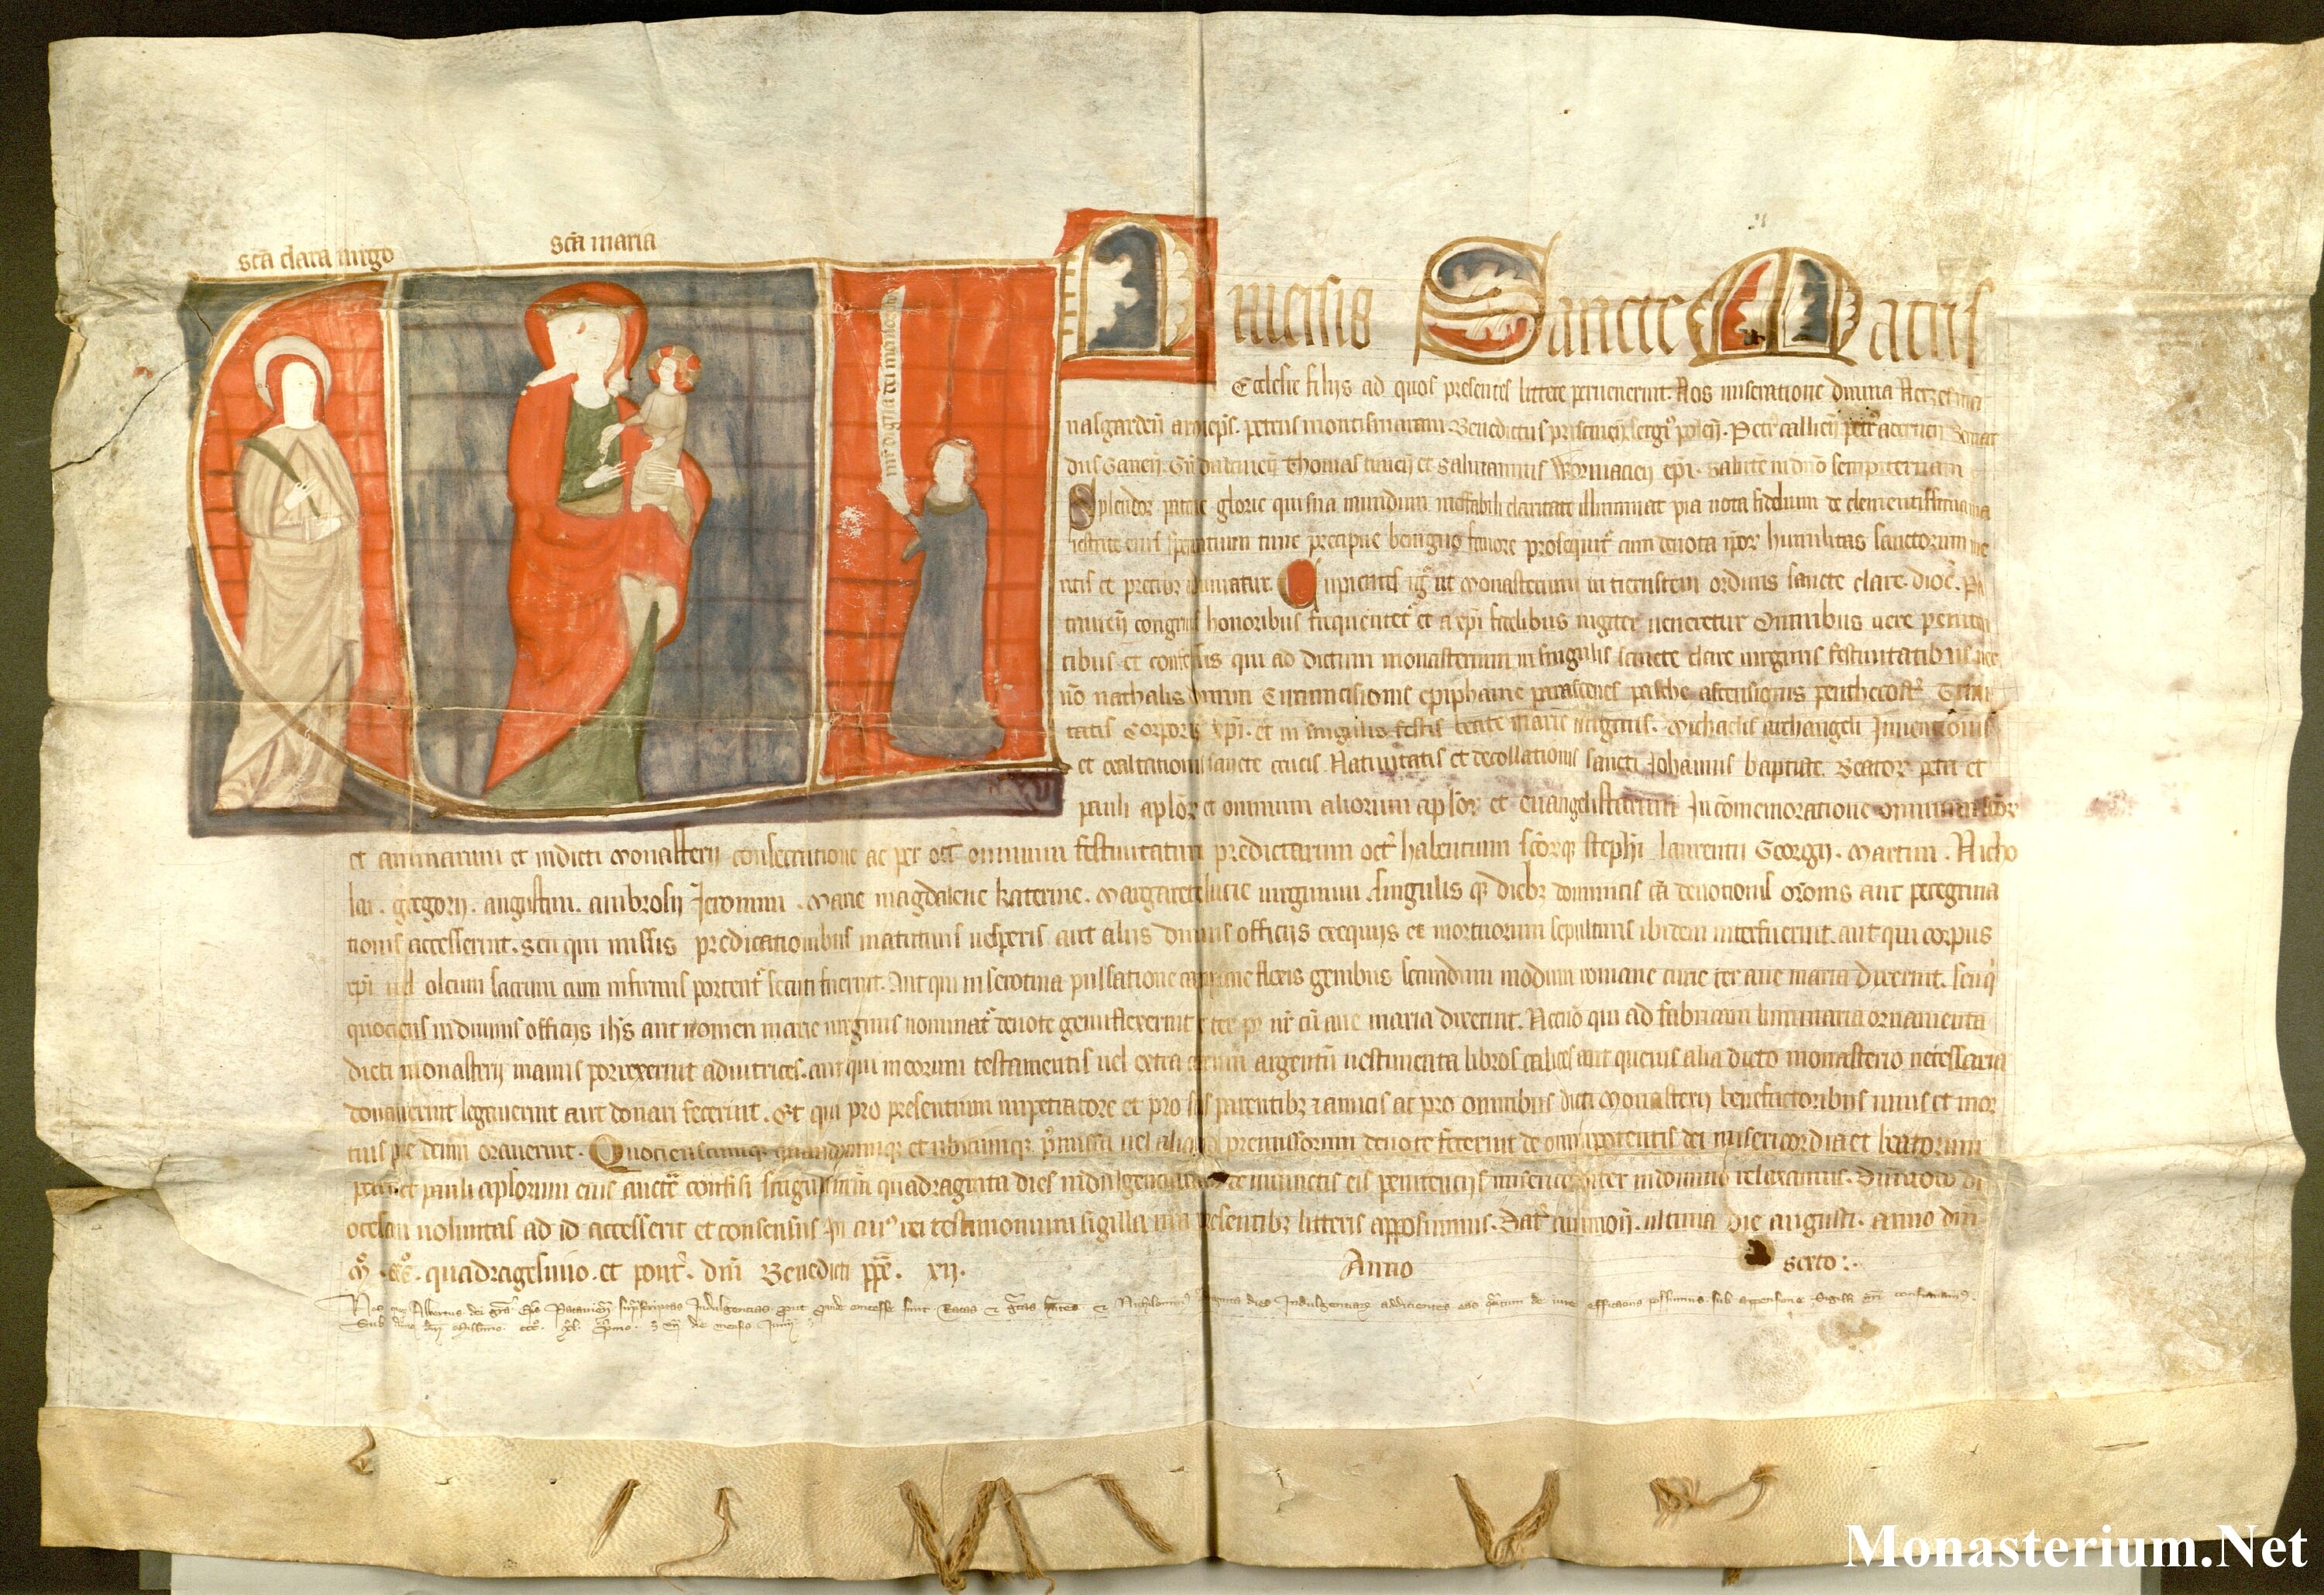 scã clara virgo
scã maria
UNiuersis Sancte Matris
Ecclesie filijs ad quos presentes littere peruenerint. Nos miseratione diuina
archiepc̃s. petrus montismarani Benedictus
Thomas et Salmannus Wormacieñ epĩ. Salutē in dño sempiternam
Splendor paterne glorie qui sua mundum ineffabili claritate illuminat pia uota fidelium de clementissima ma
iestate eius sperantium tunc precipue benigno fauore prosequit̉ cum deuota ip̃or humilitas sanctorum me
ritis et precibꝫ adiuuatur. Cupientes igr̃ ut Monasterium in tiernstein ordinis sancte clare. dioc̃. Pa
tauieñ congruis honoribus frequentet̉ et a xp̃i fidelibus iugiter ueneretur Omnibus uere peniten
tibus et confessis qui ad dictum monasterium in singulis sancte clare uirginis festiuitatibus nec
nõ nathalis domini Circumcisionis epiphanie parasceues pasche ascensionis penthecost̉ Trini
tatis Corporis xp̃i. et in singulis festis beate marie uirginis. Michaelis archangeli Inuentionis
et exaltationis sancte crucis Natiuitatis et decollationis sancti Johannis baptiste. Beator petri et
pauli aplõr et omnium aliorum aplõr et euangelistarum In cõmemoratione omnium sc̃or
et animarum et in dicti Monasterij consecratione ac per oct̉ omnium festiuitatum predictarum oct̉ habentium sc̃orqꝫ stephĩ laurentii Georgij. Martini. Nicho
lai. gregorij. augustini. ambrosij Jeronimi. Marie magdalene katerine. Margarete lucie uirginum singulis qꝫ diebꝫ dominicis cã deuotionis or̃onis aut peregrina
tionis accesserint. seu qui missis predicationibus matutinis uesperis aut alijs diuinis officijs exequijs et mortuorum sepulturis ibidem interfuerint. aut qui corpus
xp̃i uel oleum sacrum cum infirmis portent̉ secuti fuerint. Aut qui in serotina pulsatione campane flexis genibus secundum modum romane curie ter aue maria dixerint. seu q̃
quociens in diuinis officijs ihs̃ aut nomen marie uirginis nominat̉ deuote genuflexerint ter pr̃ nr̃ cũ aue maria dixerint. Necnõ qui ad fabricam luminaria ornamenta
dicti monasterij manus porrexerint adiutrices. aut qui in eorum testamentis uel extra aurum argentũ uestimenta libros calices aut queuis alia dicto monasterio necessaria
donauerint legauerint aut donari fecerint. Et qui pro presentium impetratore et pro suis parentibꝫ ⁊ amicis ac pro omnibus dicti Monasterij benefactoribus uiuis et mor
tuis pie deum orauerint. Quociens cumqꝫ quandocumqꝫ et ubicumqꝫ p̃missa uel aliquid premissorum deuote fecerint de omnipotentis dei misericordia et beatorum
petri et pauli aplorum eius auct̃e confisi singuli nr̃m quadraginta dies indulgenciarum de iniunctis eis penitencijs misericorditer in domino relaxamus. Dummodo di
ocesani uoluntas ad id accesserit et consensus In cuiꝰ rei testimonium sigilla nr̃a presentibꝫ litteris apposuimus. Dat̉ auinioñ. ultima die augusti. anno dñi
M̊. ccc̊. quadragesimo. et pont̉. dñi Benedicti pp̃e. xij. Anno sexto:.
Nos Albertus dei gr̃a Ep̃s Patauieñ sup̃scriptas Indulgencias put̉ concesse sunt Ratas et gratas habentes Indulgenciarũ addicientes eas q̃ntum de iure efficacius possumus sub appensione Sigilli nr̃i confirmamꝰ.
Sub dñi Millimo. ccc̊. xl. de mense Junij